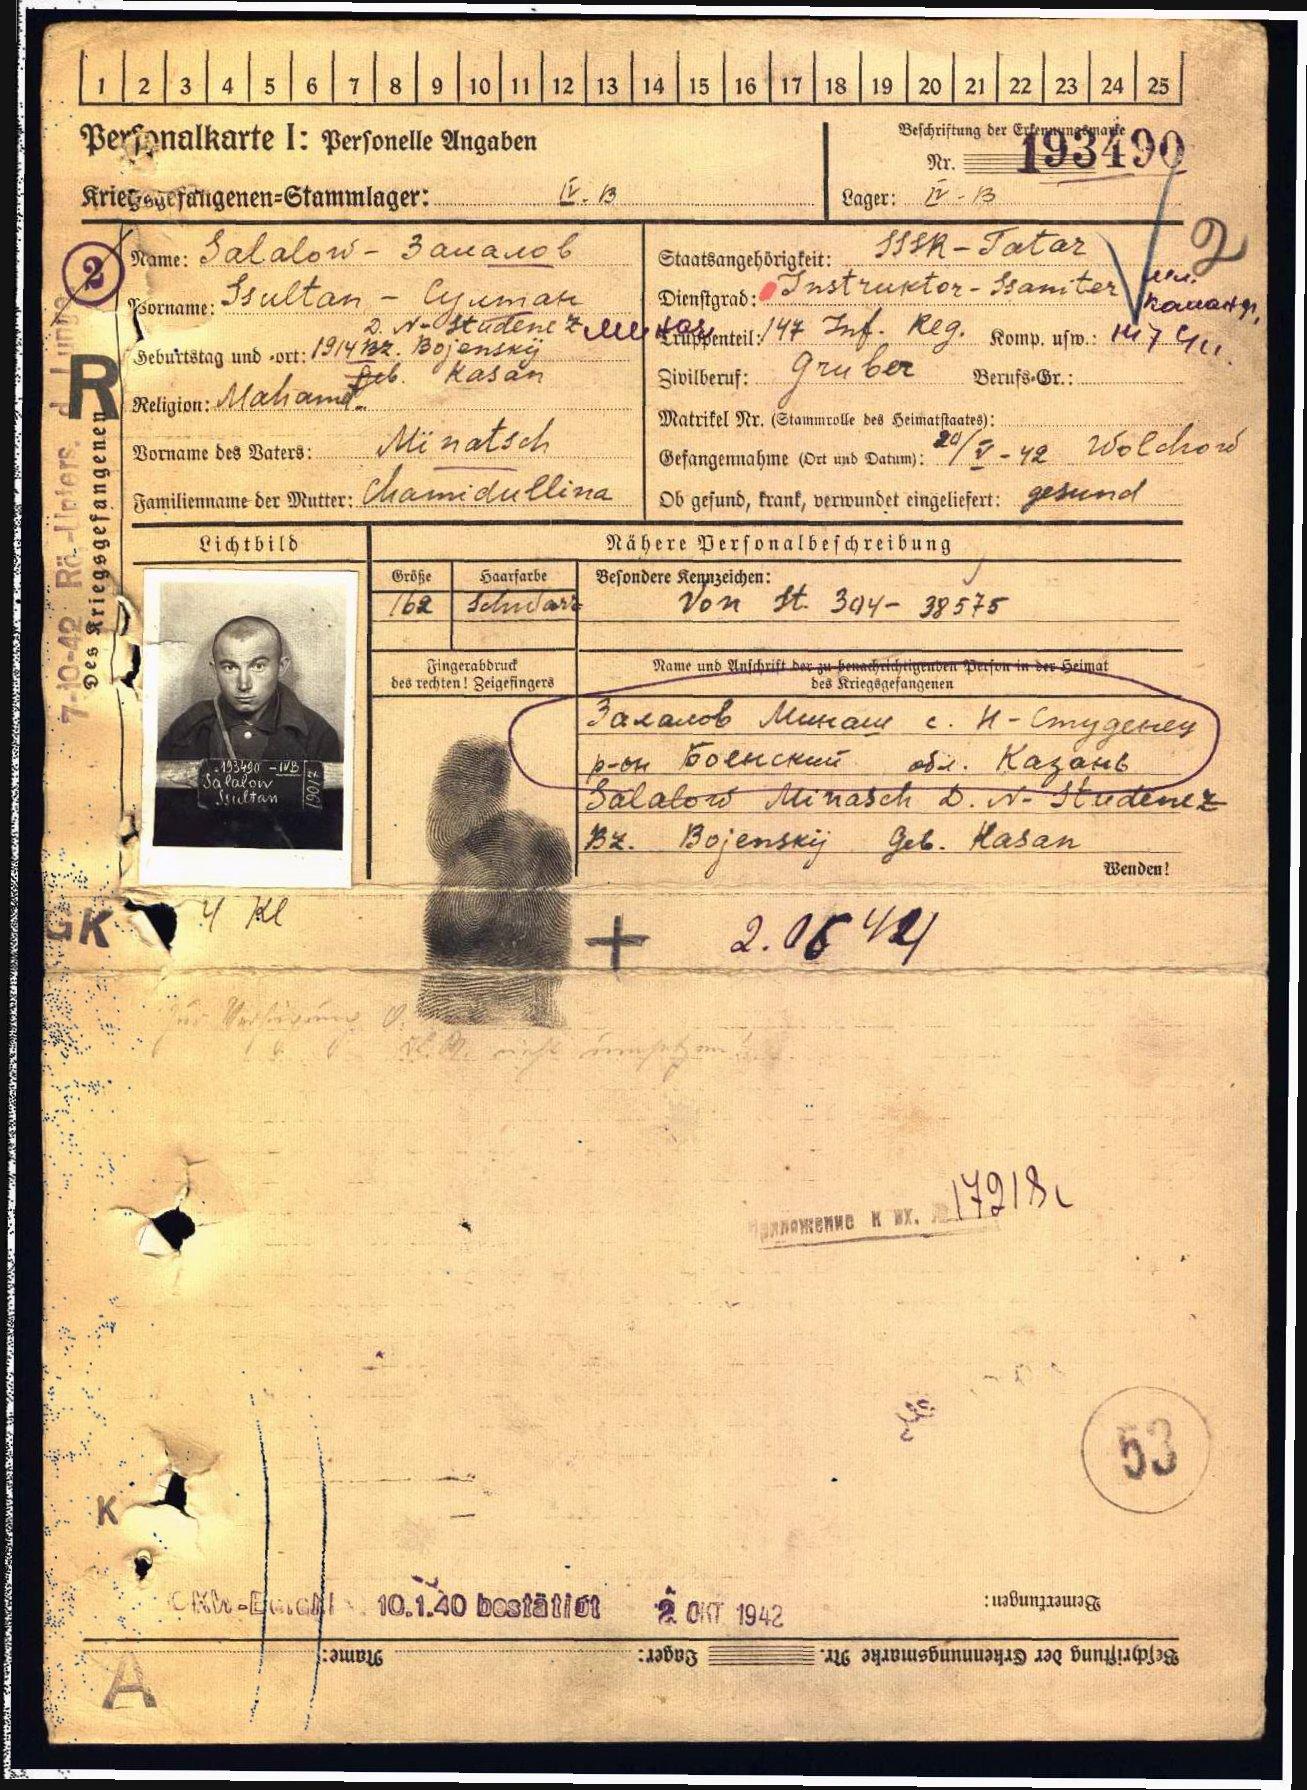 1 2 3 4 5 6 7 8 9 10 11 12 13 14 15 16 17 18 19 20 21 22 23 24 25
Personalkarte I: Personelle Angaben
Beschriftung der Erkennungsmarke
Nr. 193490
Kriegsgefangenen-Stammlager: IV-B
Lager: IV-B
2
2
Name: Salalow - Залалов
Vorname: Ssultan - Султан
D. N-Studenez
Geburtstag und -ort: 1914 Bz. Bojenskij
Geb. Kasan
Religion: Maham.
Vorname des Vaters: Minatsch
Familienname der Mutter: Chamidullina
Staatsangehörigkeit: SSSR - Tatar
Dienstgrad: Instruktor-Ssaniter
мл. командр.
Truppenteil: 147 Inf. Reg. Komp. usw.: 147
Zivilberuf: Gruber Berufs-Gr.:
Matrikel Nr. (Stammrolle des Heimatstaates):
Gefangennahme (Ort und Datum): 24/V-42 Wolchow
Ob gesund, krank, verwundet eingeliefert: gesund
R
Des Kriegsgefangenen
7-10-42 Rö.-Unters.
Lichtbild
Nähere Personalbeschreibung
Größe Haarfarbe Besondere Kennzeichen:
162 Schwarz Von St. 304-38575
Fingerabdruck
des rechten! Zeigefingers
Name und Anschrift der zu benachrichtigenden Person in der Heimat
des Kriegsgefangenen
193490 - IVB
Salalow
Ssultan
Залалов Минаш с. Н-Студенец
р-он Боенский обл. Казань
Salalow Minasch D. N-Studenez
Bz. Bojenskij Geb. Kasan
Wenden!
GK
4 Kl
+ 2.06 44
nicht
Приложение к вх. № 17218с
53
K
10.1.40 bestätigt 2 OKT 1942
Bemerkungen:
Beschriftung der Erkennungsmarke Nr. Lager: Name:
A